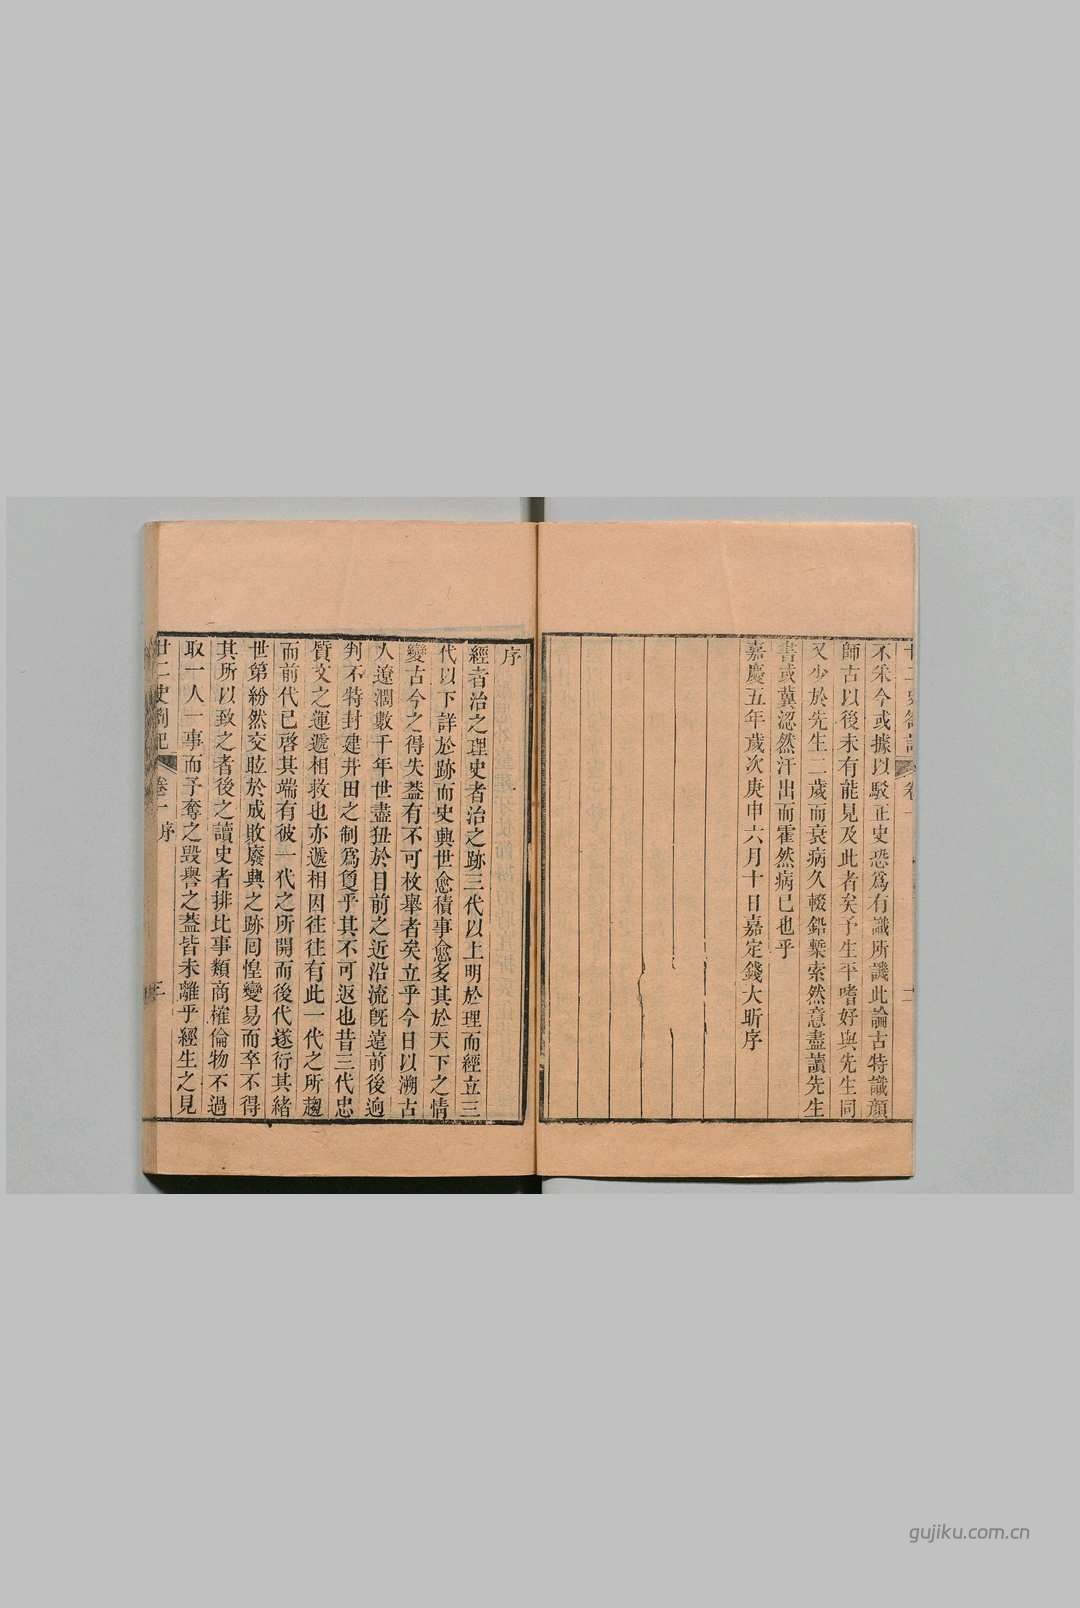 不采今或據以駁正史恐爲有識所譏此論古特識顔
師古以後未有能見及此者矣予生平嗜好與先生同
又少於先生二歲而衰病久輟鉛槧索然意盡讀先生
書或冀涊然汗出而霍然病已也乎
嘉慶五年歲次庚申六月十日嘉定錢大昕序
序
經者治之理史者治之跡三代以上明於理而經立三
代以下詳於跡而史興世愈積事愈多其於天下之情
變古今之得失葢有不可枚舉者矣立乎今日以溯古
人遼濶數千年世盡狃於目前之近沿流旣遠前後逈
判不特封建井田之制爲敻乎其不可返也昔三代忠
質文之運遞相救也亦遞相因往往有此一代之所趨
而前代已啓其端有彼一代之所開而後代遂衍其緒
世第紛然交眩於成敗廢興之跡囘惶變易而卒不得
其所以致之者後之讀史者排比事類商榷倫物不過
取一人一事而予奪之毀譽之葢皆未離乎經生之見
廿二史劄記 卷一 序 一
gujiku.com.cn